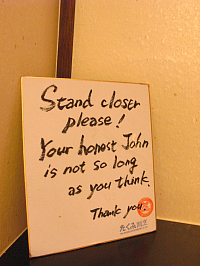 Stand closer
please!
Your honest John
is not so long
as you think.
Thank you.